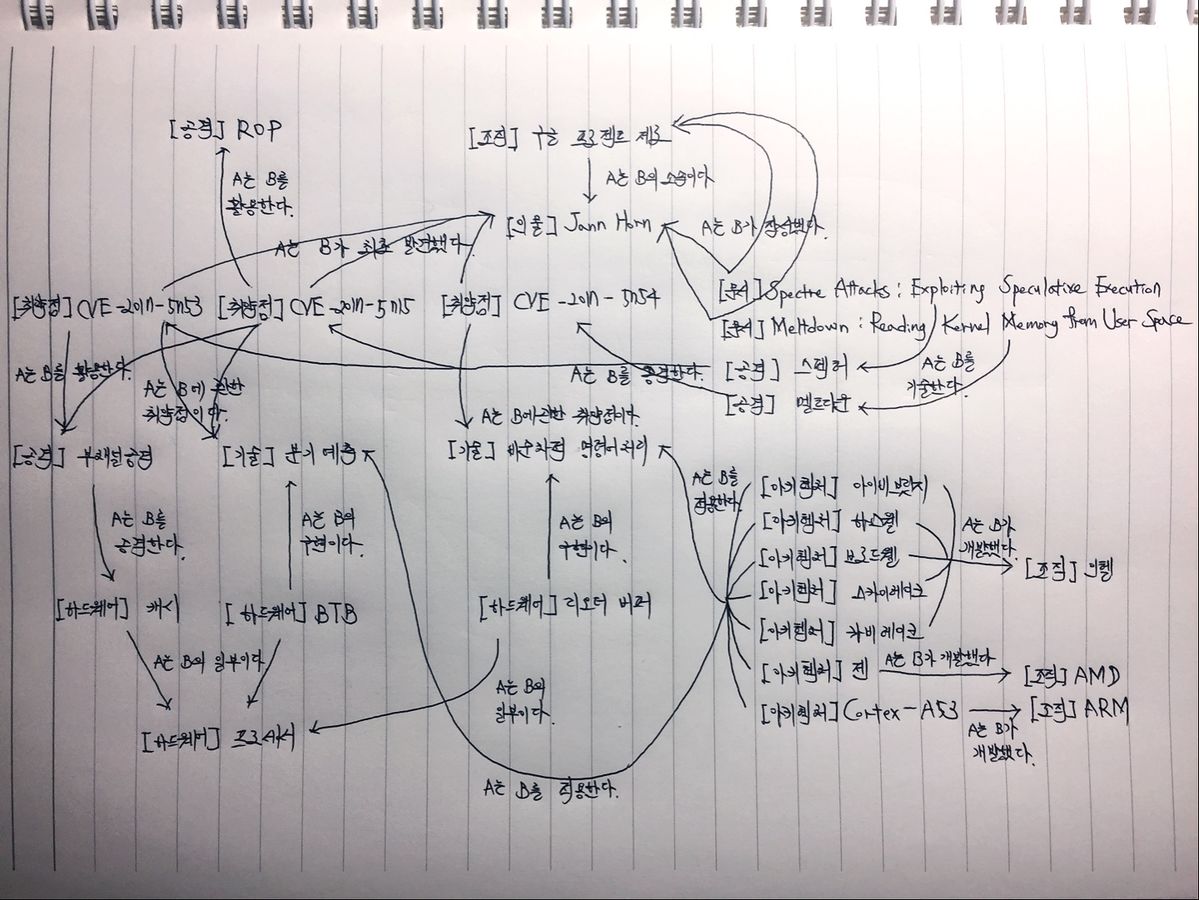 [공격] ROP
[조직] 구글 프로젝트 제로
A는 B를
활용한다.
A는 B의 소속이다.
[인물] Jann Horn
A는 B가 작성했다.
A는 B가 최초 발견했다.
[취약점] CVE-2017-5753
[취약점] CVE-2017-5715
[취약점] CVE-2017-5754
[문서] Spectre Attacks: Exploiting Speculative Execution
[문서] Meltdown: Reading Kernel Memory from User Space
A는 B를 활용한다.
A는 B에 관한
취약점이다.
A는 B를 공격한다.
[공격] 스펙터
A는 B를
기술한다.
[공격] 멜트다운
A는 B에 관한 취약점이다.
[공격] 부채널 공격
[기술] 분기 예측
[기술] 비순차적 명령어 처리
A는 B를
적용한다.
[아키텍처] 아이비브릿지
[아키텍처] 하스웰
[아키텍처] 브로드웰
[아키텍처] 스카이레이크
[아키텍처] 카비레이크
A는 B가
개발했다.
[조직] 인텔
A는 B를
공격한다.
A는 B의
구현이다.
A는 B의
구현이다.
[하드웨어] 캐시
[하드웨어] BTB
[하드웨어] 리오더 버퍼
[아키텍처] 젠
A는 B가 개발했다
[조직] AMD
A는 B의 일부이다
A는 B의
일부이다.
[아키텍처] Cortex-A53
[조직] ARM
A는 B가
개발했다.
[하드웨어] 프로세서
A는 B를 적용한다.